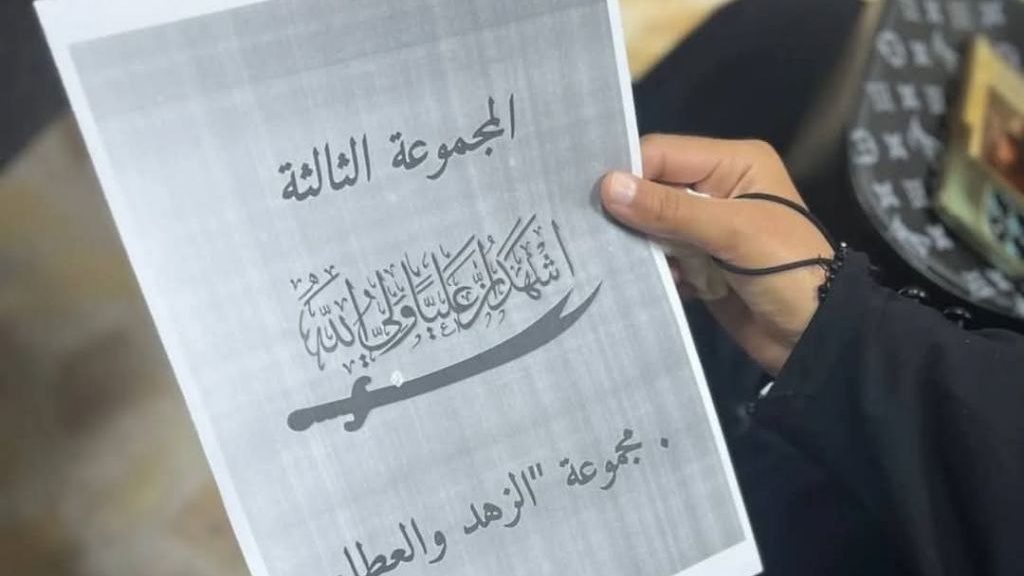 المجموعة الثالثة
اشهد ان عليا ولي الله
. مجموعة "الزهد والعطا